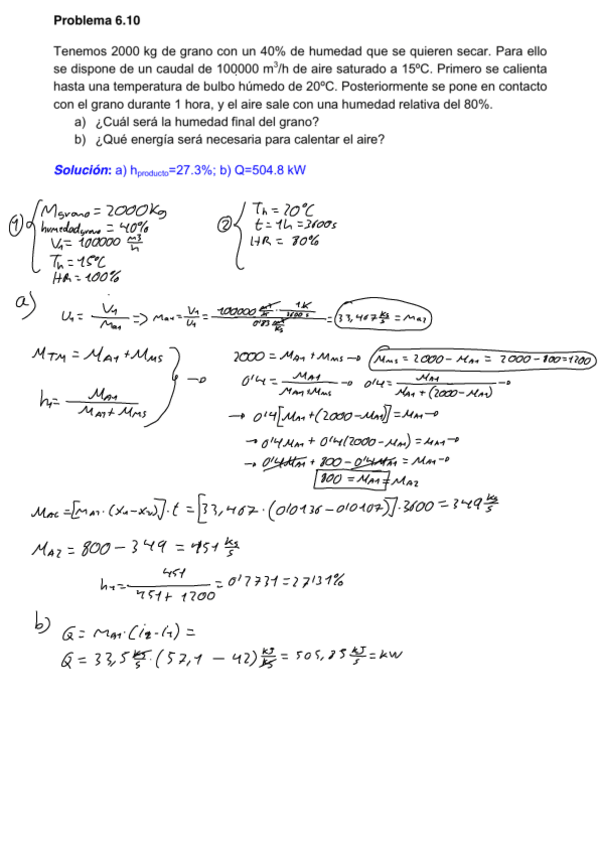 Problema 6.10
Tenemos 2000 kg de grano con un 40% de humedad que se quieren secar. Para ello
se dispone de un caudal de 100000 m³/h de aire saturado a 15ºC. Primero se calienta
hasta una temperatura de bulbo húmedo de 20ºC. Posteriormente se pone en contacto
con el grano durante 1 hora, y el aire sale con una humedad relativa del 80%.
a) ¿Cuál será la humedad final del grano?
b) ¿Qué energía será necesaria para calentar el aire?
Solución: a) hproducto=27.3%; b) Q=504.8 kW
① Mgrano = 2000 Kg
humedad grano = 40%
V₁ = 100000 m3/h
Th = 15ºC
HR = 100%
② Th = 20ºC
t = 1h = 3600s
HR = 80%
a) υ₁ = V̇₁/Ma1 => Ma1 = V₁/υ₁ = (100000 m3/h · 1h/3600 s)/(0'83 m3/kg) = 33,467 kg/s = Ma2
MTM = MA1 + MMS
h₁ = MA1/(MA1 + MMS)
2000 = MA1 + MMS → MMS = 2000 - MA1 = 2000 - 800 = 1200
0'4 = MA1/(MA1 + MMS) → 0'4 = MA1/(MA1 + (2000 - MA1)) →
→ 0'4[MA1 + (2000 - MA1)] = MA1 →
→ 0'4MA1 + 0'4(2000 - MA1) = MA1 →
→ 0'4MA1 + 800 - 0'4MA1 = MA1 →
800 = MA1 = MA2
= [MA1 · ]·t = [33,467 · (0'0136 - 0'0107)]·3600 = 349 kg/s
MA2 = 800 - 349 = 451 kg/s
= 451/(451 + 1200) = 0'2731 = 27'31%
b) Q = MA1·(i₂ - i₁) =
Q = 33,5 kg/s · (57,1 - 42) kJ/kg = 505,85 kJ/s = kW